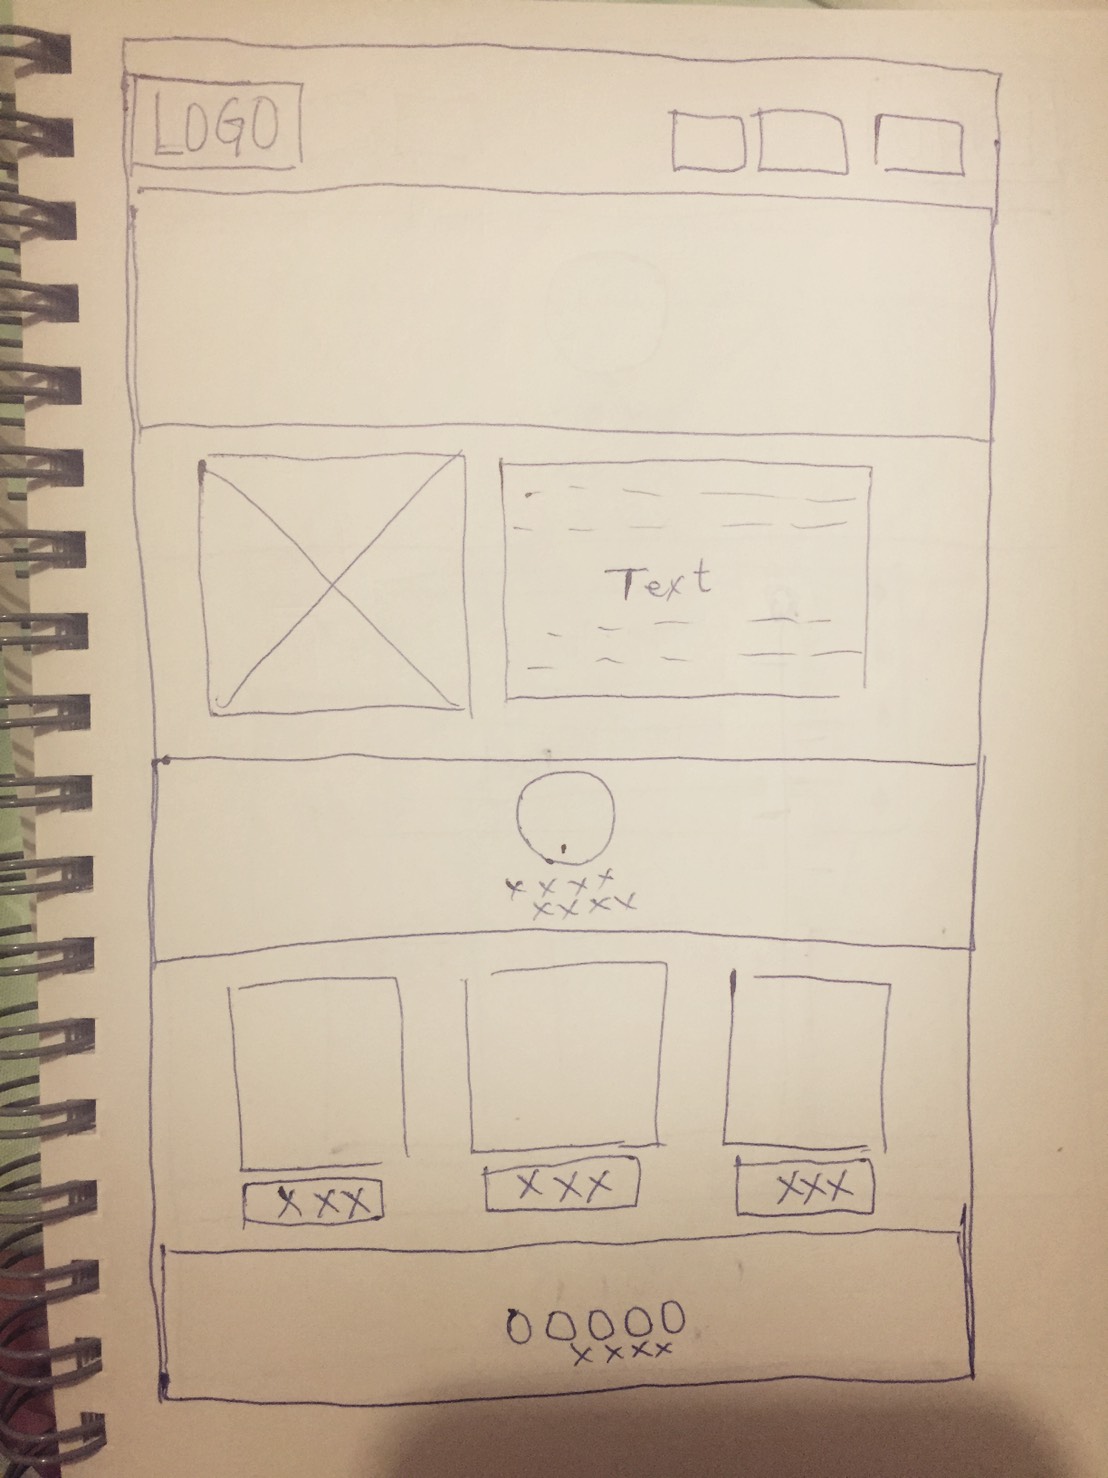 LOGO
Text
x x x x
x x x x
X X X
X X X
X X X
O O O O O
x x x x